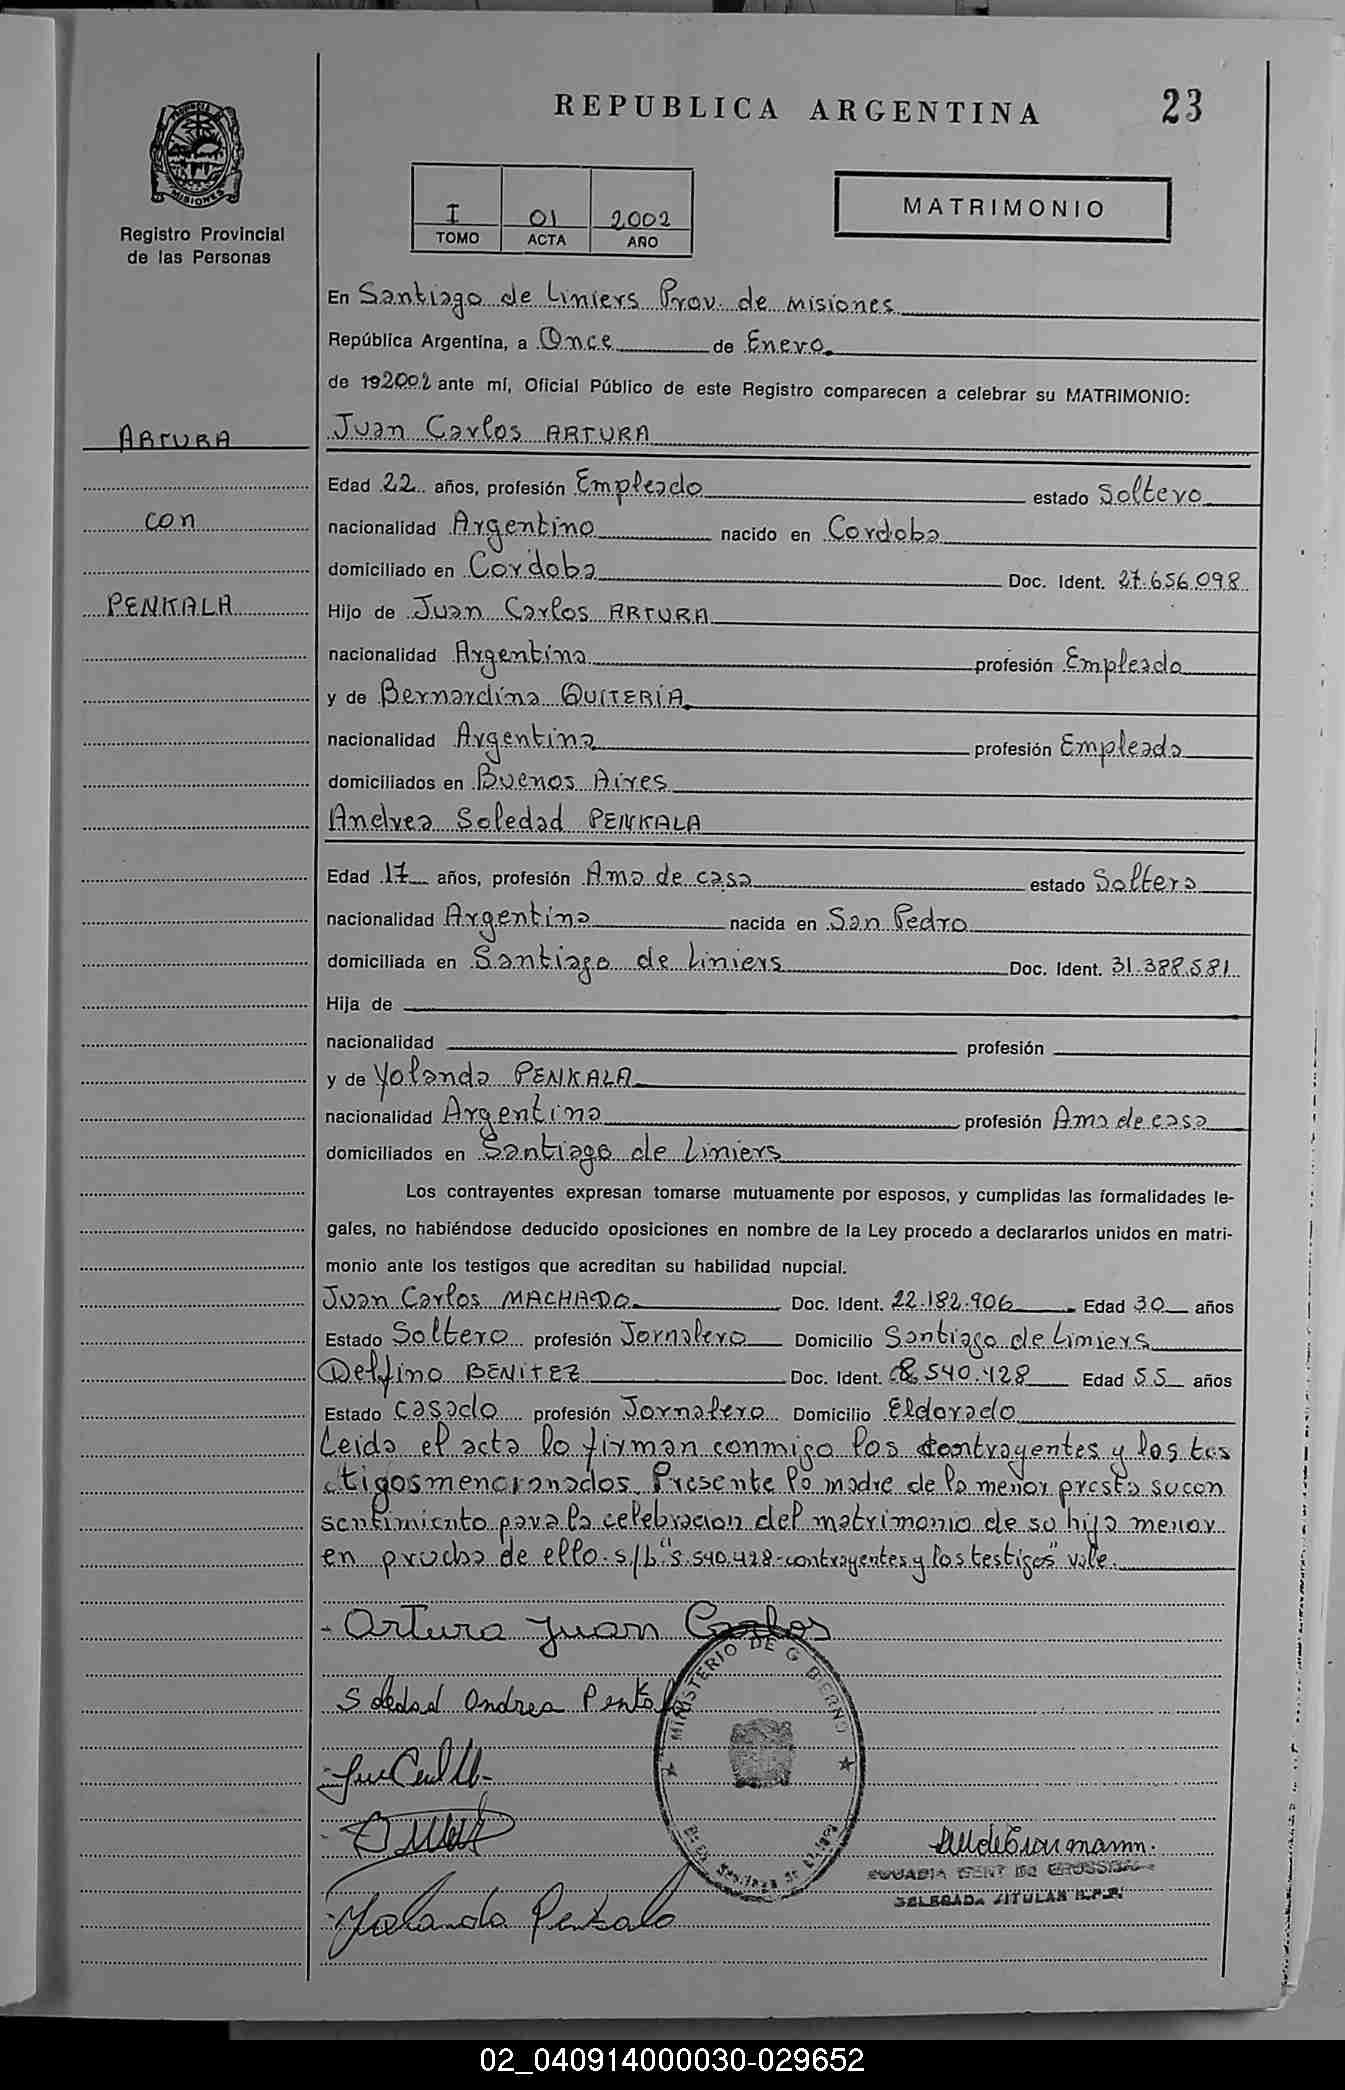 REPUBLICA ARGENTINA
23
PROVINCIA DE
MISIONES
Registro Provincial
de las Personas
I 01 2002
TOMO ACTA AÑO
MATRIMONIO
En Santiago de Liniers Prov. de Misiones
República Argentina, a Once de Enero
de 192002 ante mí, Oficial Público de este Registro comparecen a celebrar su MATRIMONIO:
ARTURA
con
PENKALA
Juan Carlos ARTURA
Edad 22 años, profesión Empleado estado Soltero
nacionalidad Argentino nacido en Cordoba
domiciliado en Cordoba Doc. Ident. 27.656.098
Hijo de Juan Carlos ARTURA
nacionalidad Argentina profesión Empleado
y de Bernardina QUITERIA
nacionalidad Argentina profesión Empleada
domiciliados en Buenos Aires
Andrea Soledad PENKALA
Edad 17 años, profesión Ama de casa estado Soltera
nacionalidad Argentina nacida en San Pedro
domiciliada en Santiago de Liniers Doc. Ident. 31.388.581
Hija de
nacionalidad profesión
y de Yolanda PENKALA
nacionalidad Argentina profesión Ama de casa
domiciliados en Santiago de Liniers
Los contrayentes expresan tomarse mutuamente por esposos, y cumplidas las formalidades le-
gales, no habiéndose deducido oposiciones en nombre de la Ley procedo a declararlos unidos en matri-
monio ante los testigos que acreditan su habilidad nupcial.
Juan Carlos MACHADO Doc. Ident. 22.182.906 Edad 30 años
Estado Soltero profesión Jornalero Domicilio Santiago de Liniers
Delfino BENITEZ Doc. Ident. 8.540.428 Edad 55 años
Estado Casado profesión Jornalero Domicilio Eldorado
Leida el acta lo firman conmigo los contrayentes y los tes
tigos mencionados. Presente la madre de la menor presta su con
sentimiento para la celebracion del matrimonio de su hija menor
en prueba de ello. s/b "8.540.428-contrayentes y los testigos" vale.
Artura Juan Carlos
Soledad Andrea Penkala
MINISTERIO DE G BIERNO
Yolanda Penkala
DELEGADA TITULAR R.P.P.
02_040914000030-029652